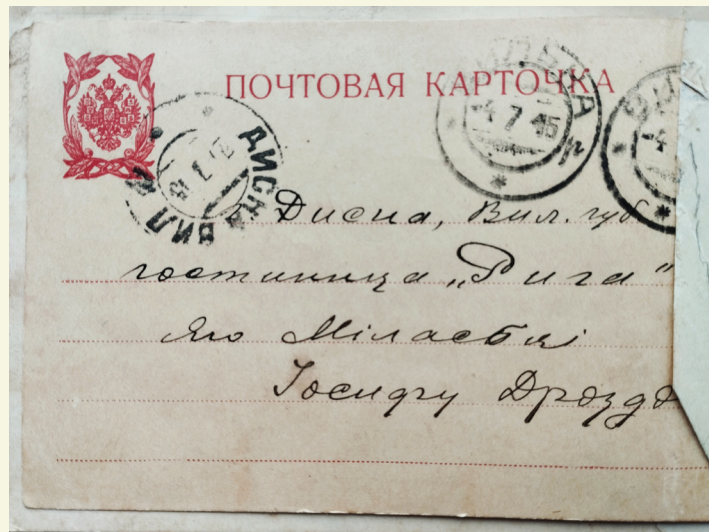 ПОЧТОВАЯ КАРТОЧКА
ДИСНА ВИЛ
4 7 15
Дисна, Вил. губ
гостинница „Рига“
Яго Міласьці
Іосифу Дрозд